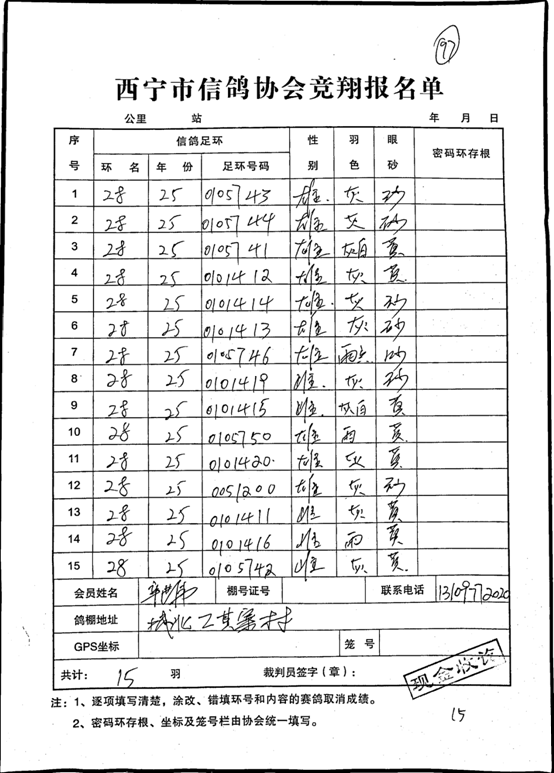 197
西宁市信鸽协会竞翔报名单
公里 站 年 月 日
序号 信鸽足环 性别 羽色 眼砂 密码环存根
环 名 年 份 足环号码
1 28 25 0105743 雄 灰 砂
2 28 25 0105744 雄 灰 砂
3 28 25 0105741 雄 灰白 黄
4 28 25 0101412 雄 灰 黄
5 28 25 0101414 雄 灰 砂
6 28 25 0101413 雄 灰 砂
7 28 25 0105746 雄 雨点 砂
8 28 25 0101419 雌 灰 砂
9 28 25 0101415 雌 灰白 黄
10 28 25 0105750 雄 雨 黄
11 28 25 0101420 雄 灰 黄
12 28 25 0051200 雄 灰 砂
13 28 25 0101411 雌 灰 黄
14 28 25 0101416 雌 雨 黄
15 28 25 0105742 雌 灰 黄
会员姓名 棚号证号 联系电话 13109772020
鸽棚地址 城北 村
GPS坐标 笼 号
共计： 15 羽 裁判员签字（章）：
现金收讫
注：1、逐项填写清楚，涂改、错填环号和内容的赛鸽取消成绩。
15
2、密码环存根、坐标及笼号栏由协会统一填写。